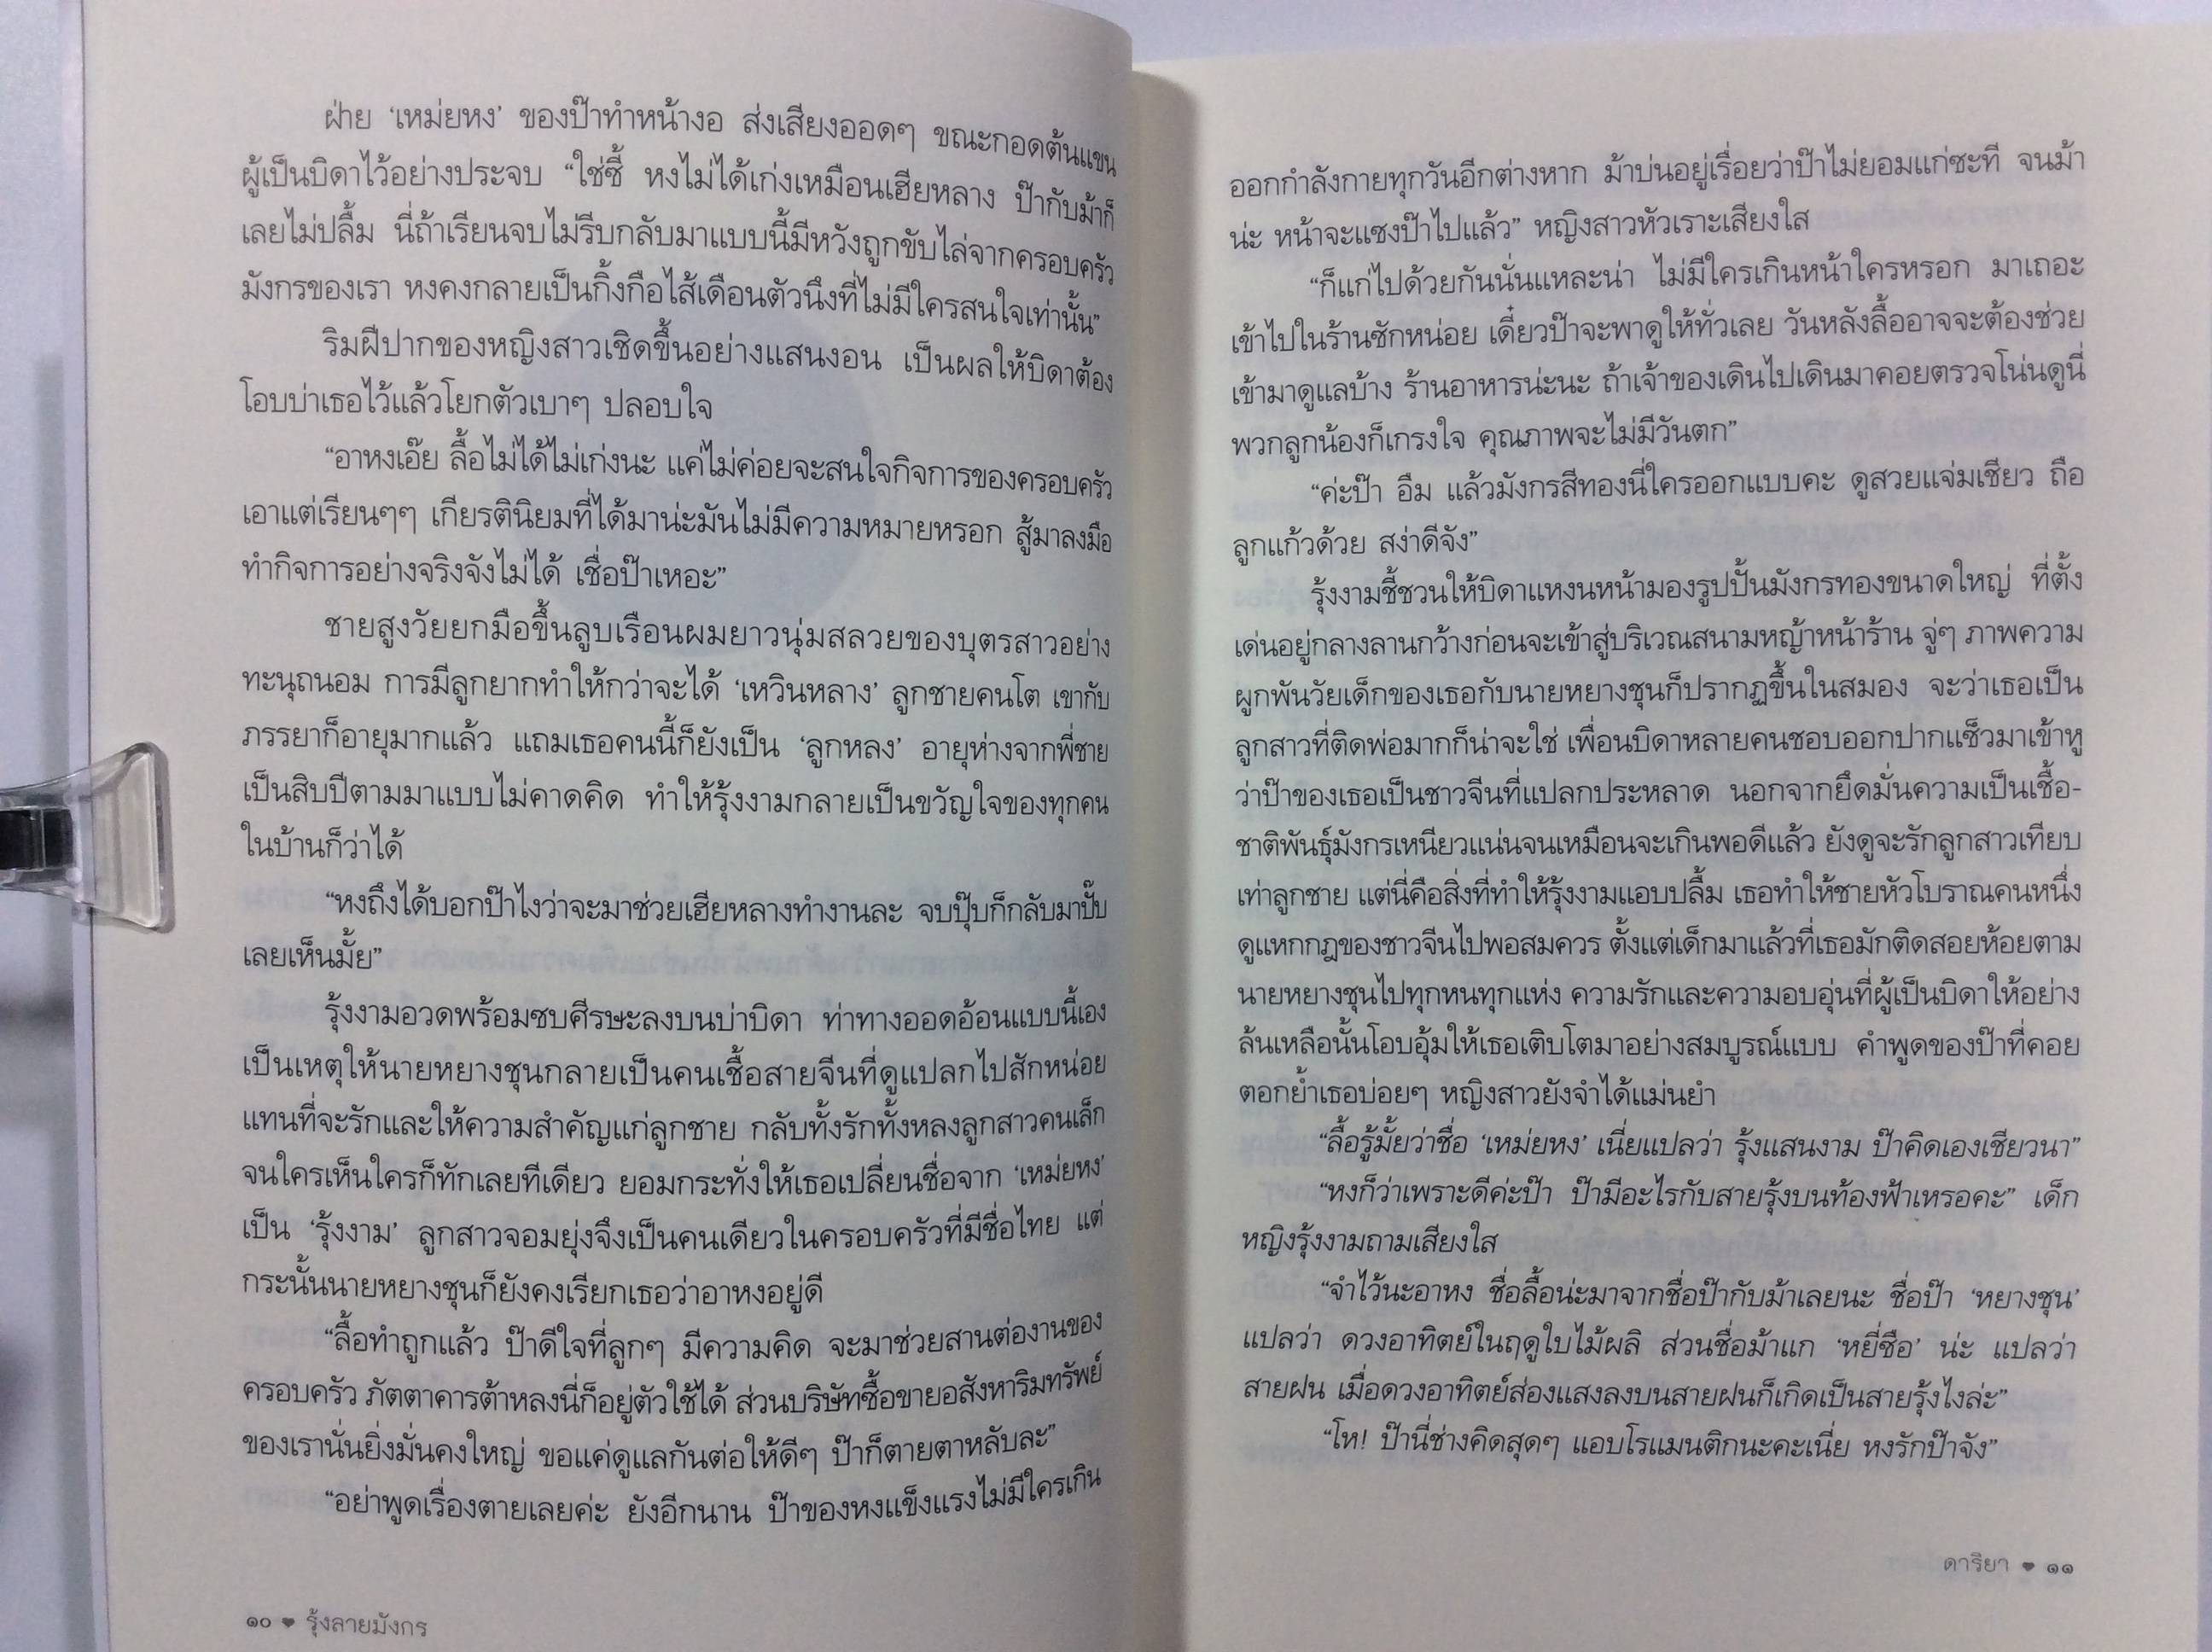 ฝ่าย ‘เหม่ยหง’ ของป๊าทำหน้างอ ส่งเสียงออดๆ ขณะกอดต้นแขน
ผู้เป็นบิดาไว้อย่างประจบ “ใช่ซี้ หงไม่ได้เก่งเหมือนเฮียหลาง ป๊ากับม้าก็
เลยไม่ปลื้ม นี่ถ้าเรียนจบไม่รีบกลับมาแบบนี้มีหวังถูกขับไล่จากครอบครัว
มังกรของเรา หงคงกลายเป็นกิ้งกือไส้เดือนตัวนึงที่ไม่มีใครสนใจเท่านั้น”
ริมฝีปากของหญิงสาวเชิดขึ้นอย่างแสนงอน เป็นผลให้บิดาต้อง
โอบบ่าเธอไว้แล้วโยกตัวเบาๆ ปลอบใจ
“อาหงเอ๊ย ลื้อไม่ได้ไม่เก่งนะ แค่ไม่ค่อยจะสนใจกิจการของครอบครัว
เอาแต่เรียนๆๆ เกียรตินิยมที่ได้มาน่ะมันไม่มีความหมายหรอก สู้มาลงมือ
ทำกิจการอย่างจริงจังไม่ได้ เชื่อป๊าเหอะ”
ชายสูงวัยยกมือขึ้นลูบเรือนผมยาวนุ่มสลวยของบุตรสาวอย่าง
ทะนุถนอม การมีลูกยากทำให้กว่าจะได้ ‘เหวินหลาง’ ลูกชายคนโต เขากับ
ภรรยาก็อายุมากแล้ว แถมเธอคนนี้ก็ยังเป็น ‘ลูกหลง’ อายุห่างจากพี่ชาย
เป็นสิบปีตามมาแบบไม่คาดคิด ทำให้รุ้งงามกลายเป็นขวัญใจของทุกคน
ในบ้านก็ว่าได้
“หงถึงได้บอกป๊าไงว่าจะมาช่วยเฮียหลางทำงานละ จบปุ๊บก็กลับมาปั๊บ
เลยเห็นมั้ย”
รุ้งงามอวดพร้อมซบศีรษะลงบนบ่าบิดา ท่าทางออดอ้อนแบบนี้เอง
เป็นเหตุให้นายหยางชุนกลายเป็นคนเชื้อสายจีนที่ดูแปลกไปสักหน่อย
แทนที่จะรักและให้ความสำคัญแก่ลูกชาย กลับทั้งรักทั้งหลงลูกสาวคนเล็ก
จนใครเห็นใครก็ทักเลยทีเดียว ยอมกระทั่งให้เธอเปลี่ยนชื่อจาก ‘เหม่ยหง’
เป็น ‘รุ้งงาม’ ลูกสาวจอมยุ่งจึงเป็นคนเดียวในครอบครัวที่มีชื่อไทย แต่
กระนั้นนายหยางชุนก็ยังคงเรียกเธอว่าอาหงอยู่ดี
“ลื้อทำถูกแล้ว ป๊าดีใจที่ลูกๆ มีความคิด จะมาช่วยสานต่องานของ
ครอบครัว ภัตตาคารต้าหลงนี่ก็อยู่ตัวใช้ได้ ส่วนบริษัทซื้อขายอสังหาริมทรัพย์
ของเรานั่นยิ่งมั่นคงใหญ่ ขอแค่ดูแลกันต่อให้ดีๆ ป๊าก็ตายตาหลับละ”
“อย่าพูดเรื่องตายเลยค่ะ ยังอีกนาน ป๊าของหงแข็งแรงไม่มีใครเกิน
๑๐ ❤ รุ้งลายมังกร
ออกกำลังกายทุกวันอีกต่างหาก ม้าบ่นอยู่เรื่อยว่าป๊าไม่ยอมแก่ซะที จนม้า
น่ะ หน้าจะแซงป๊าไปแล้ว” หญิงสาวหัวเราะเสียงใส
“ก็แก่ไปด้วยกันนั่นแหละน่า ไม่มีใครเกินหน้าใครหรอก มาเถอะ
เข้าไปในร้านซักหน่อย เดี๋ยวป๊าจะพาดูให้ทั่วเลย วันหลังลื้ออาจจะต้องช่วย
เข้ามาดูแลบ้าง ร้านอาหารน่ะนะ ถ้าเจ้าของเดินไปเดินมาคอยตรวจโน่นดูนี่
พวกลูกน้องก็เกรงใจ คุณภาพจะไม่มีวันตก”
“ค่ะป๊า อืม แล้วมังกรสีทองนี่ใครออกแบบคะ ดูสวยแจ่มเชียว ถือ
ลูกแก้วด้วย สง่าดีจัง”
รุ้งงามชี้ชวนให้บิดาแหงนหน้ามองรูปปั้นมังกรทองขนาดใหญ่ ที่ตั้ง
เด่นอยู่กลางลานกว้างก่อนจะเข้าสู่บริเวณสนามหญ้าหน้าร้าน จู่ๆ ภาพความ
ผูกพันวัยเด็กของเธอกับนายหยางชุนก็ปรากฏขึ้นในสมอง จะว่าเธอเป็น
ลูกสาวที่ติดพ่อมากก็น่าจะใช่ เพื่อนบิดาหลายคนชอบออกปากแซ็วมาเข้าหู
ว่าป๊าของเธอเป็นชาวจีนที่แปลกประหลาด นอกจากยึดมั่นความเป็นเชื้อ-
ชาติพันธุ์มังกรเหนียวแน่นจนเหมือนจะเกินพอดีแล้ว ยังดูจะรักลูกสาวเทียบ
เท่าลูกชาย แต่นี่คือสิ่งที่ทำให้รุ้งงามแอบปลื้ม เธอทำให้ชายหัวโบราณคนหนึ่ง
ดูแหกกฎของชาวจีนไปพอสมควร ตั้งแต่เด็กมาแล้วที่เธอมักติดสอยห้อยตาม
นายหยางชุนไปทุกหนทุกแห่ง ความรักและความอบอุ่นที่ผู้เป็นบิดาให้อย่าง
ล้นเหลือนั้นโอบอุ้มให้เธอเติบโตมาอย่างสมบูรณ์แบบ คำพูดของป๊าที่คอย
ตอกย้ำเธอบ่อยๆ หญิงสาวยังจำได้แม่นยำ
“ลื้อรู้มั้ยว่าชื่อ ‘เหม่ยหง’ เนี่ยแปลว่า รุ้งแสนงาม ป๊าคิดเองเชียวนา”
“หงก็ว่าเพราะดีค่ะป๊า ป๊ามีอะไรกับสายรุ้งบนท้องฟ้าเหรอคะ” เด็ก
หญิงรุ้งงามถามเสียงใส
“จำไว้นะอาหง ชื่อลื้อน่ะมาจากชื่อป๊ากับม้าเลยนะ ชื่อป๊า ‘หยางชุน’
แปลว่า ดวงอาทิตย์ในฤดูใบไม้ผลิ ส่วนชื่อม้าแก ‘หยี่ซือ’ น่ะ แปลว่า
สายฝน เมื่อดวงอาทิตย์ส่องแสงลงบนสายฝนก็เกิดเป็นสายรุ้งไงล่ะ”
“โห! ป๊านี่ช่างคิดสุดๆ แอบโรแมนติกนะคะเนี่ย หงรักป๊าจัง”
ดาริยา ❤ ๑๑